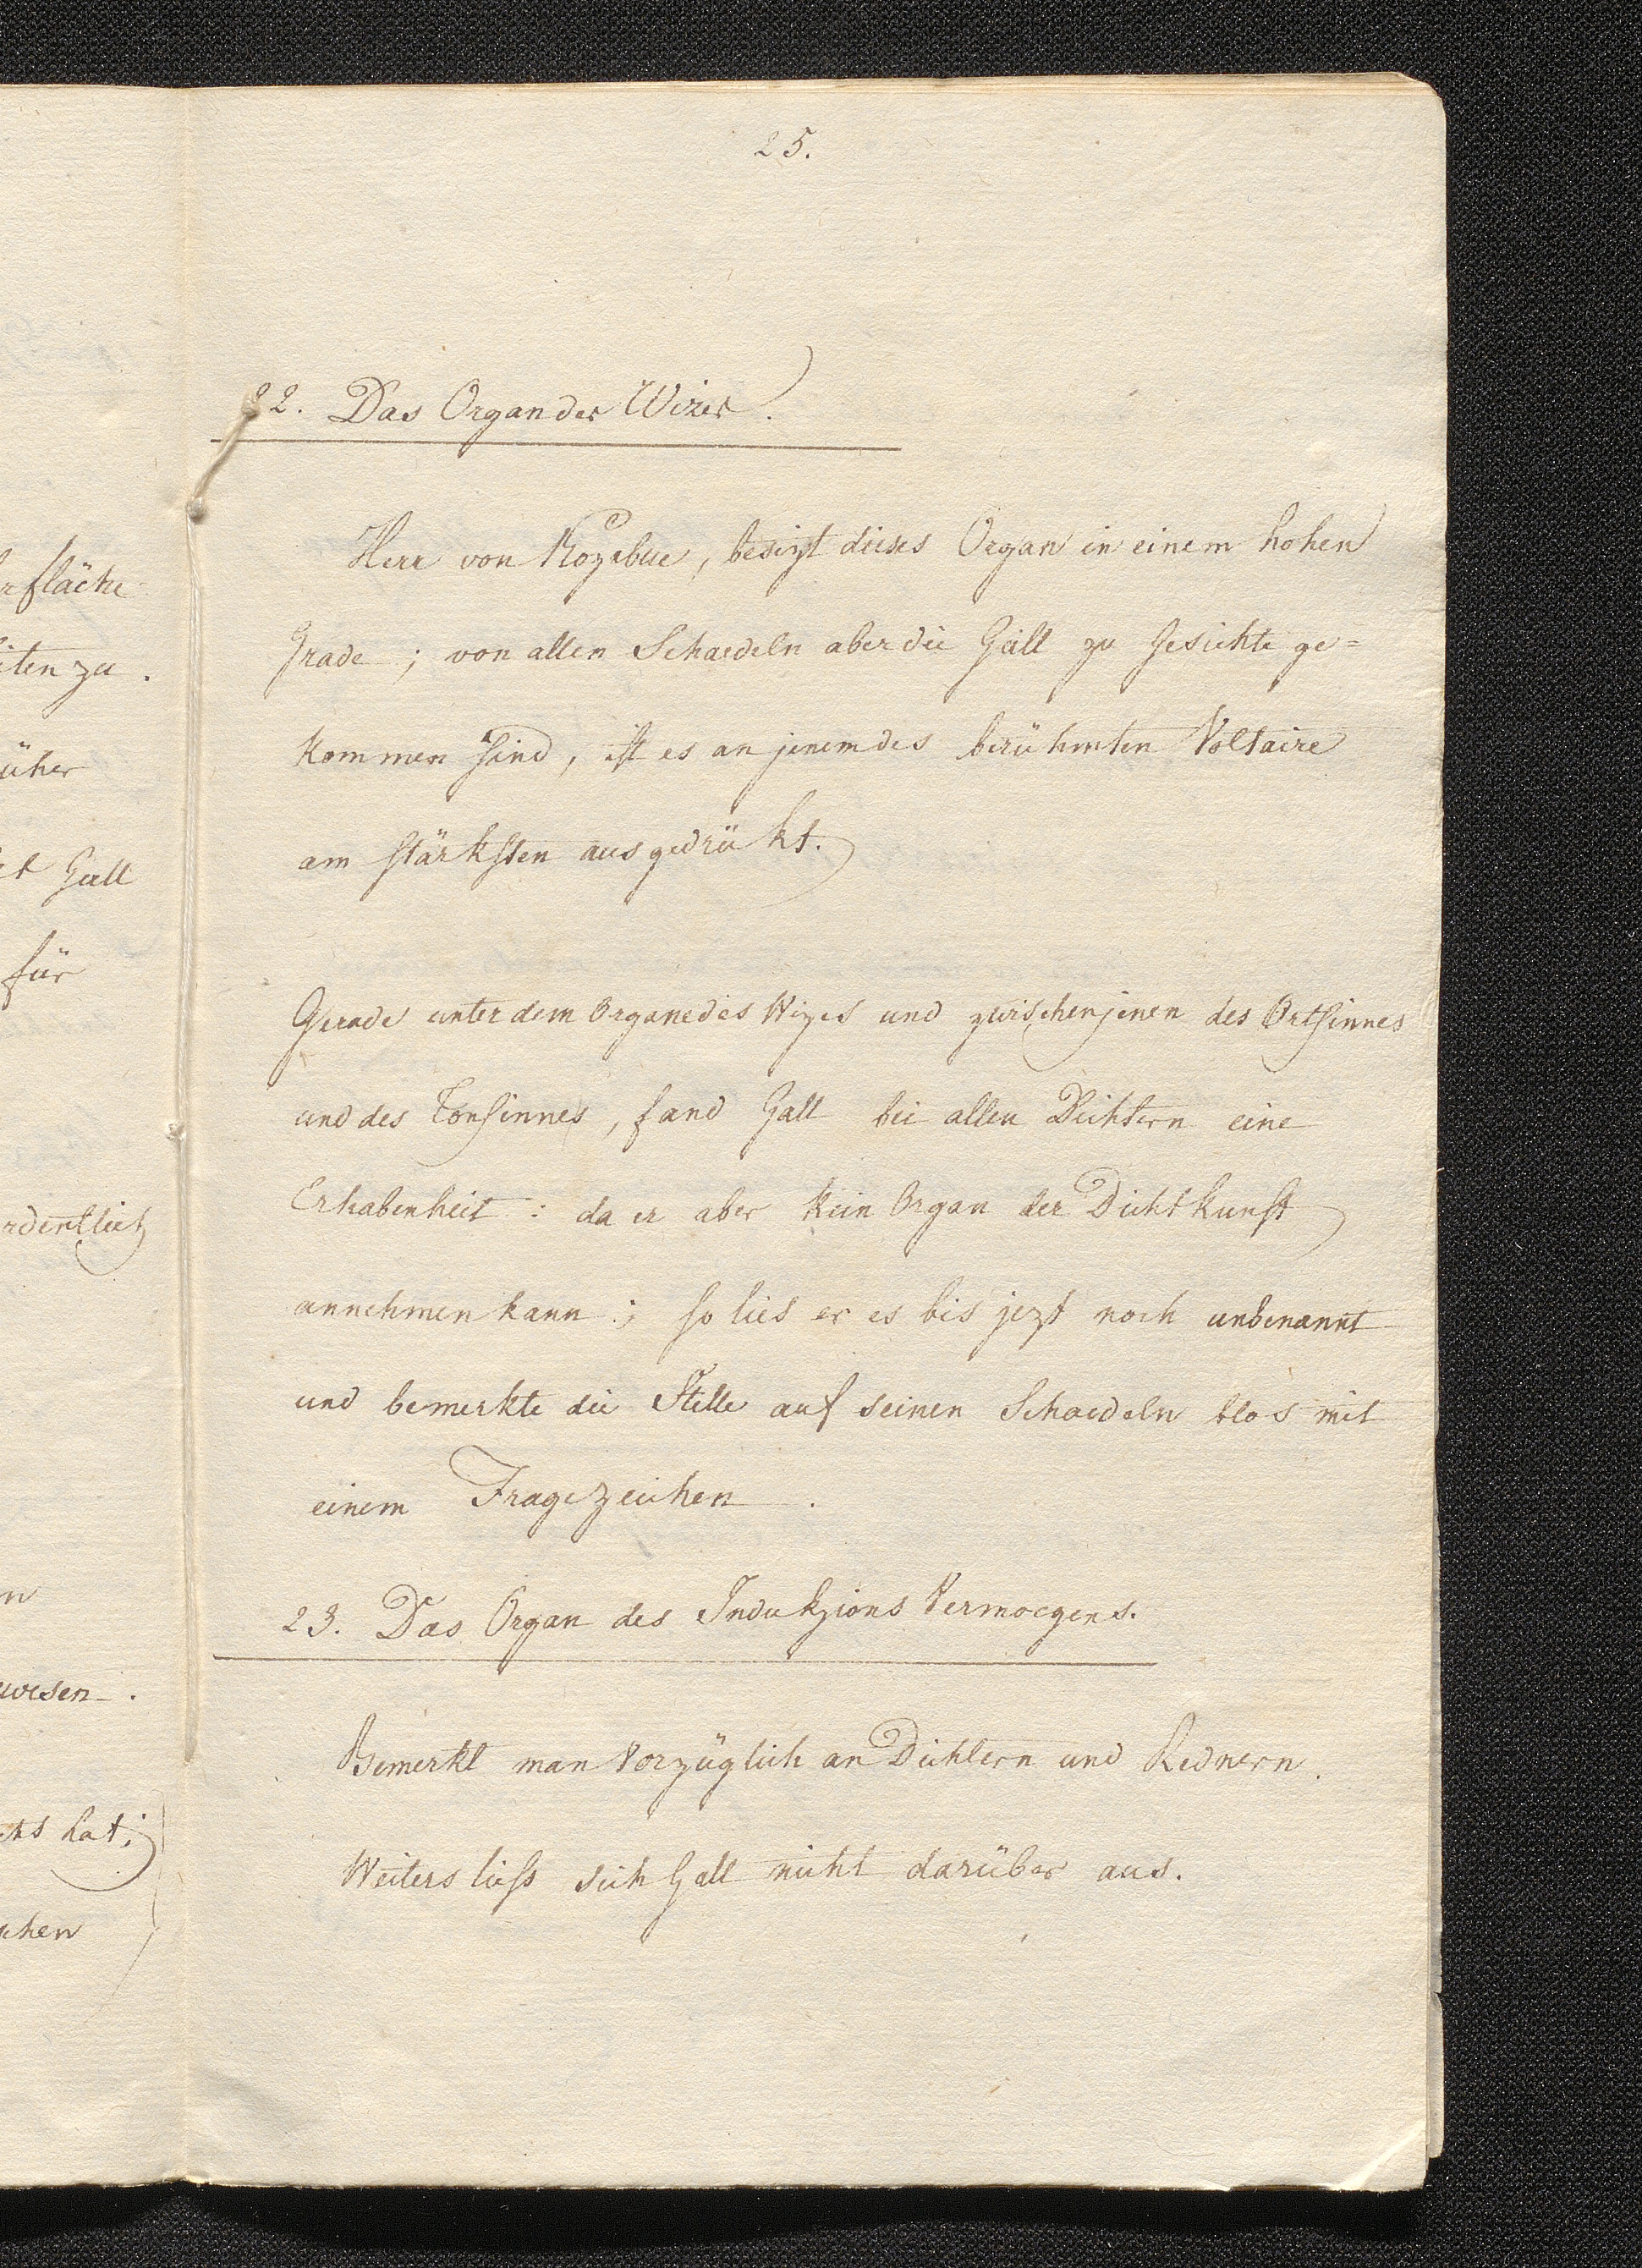 rfläche
iten zu.
üher
et Gall
für
rdentlich
n
wesen.
hat;
chen
25.
22. Das Organ des Wizes.
Herr von Kozebue, besizt dieses Organ in einem hohen
Grade; von allen Schaedeln aber die Gall zu Gesichte ge=
kommen sind, ist es an jenem des berühmten Voltaire
am stärksten ausgedrükt.
Gerade unter dem Organe des Wizes und zwischen jenen des Ortsinnes
und des Tonsinnes, fand Gall bei allen Dichtern eine
Erhabenheit: da er aber kein Organ der Dichtkunst
annehmen kann; so lies er es bis jezt noch unbenannt
und bemerkte die Stelle auf seinen Schaedeln blos mit
einem Fragezeichen.
23. Das Organ des Indukzions Vermoegens.
Bemerkt man vorzüglich an Dichtern und Rednern.
Weiters liess sich Gall nicht darüber aus.